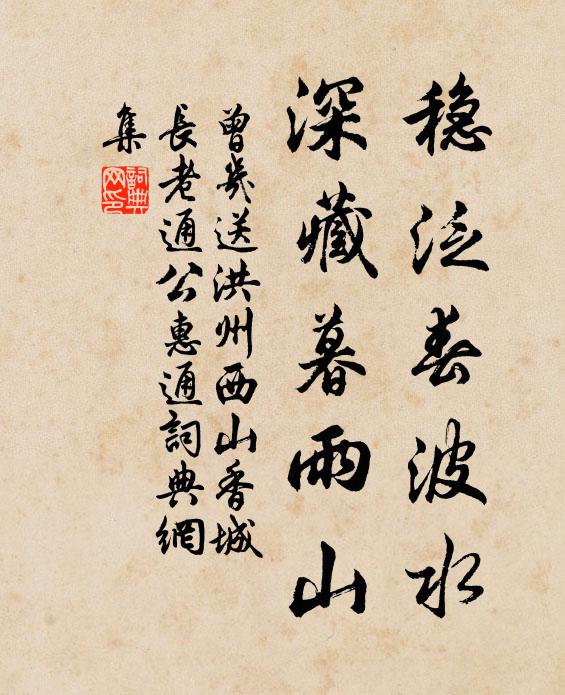 穩泛春波水
深藏暮雨山
曾幾送洪州西山香城
長老通公惠通詞典網
集
詞典
网印